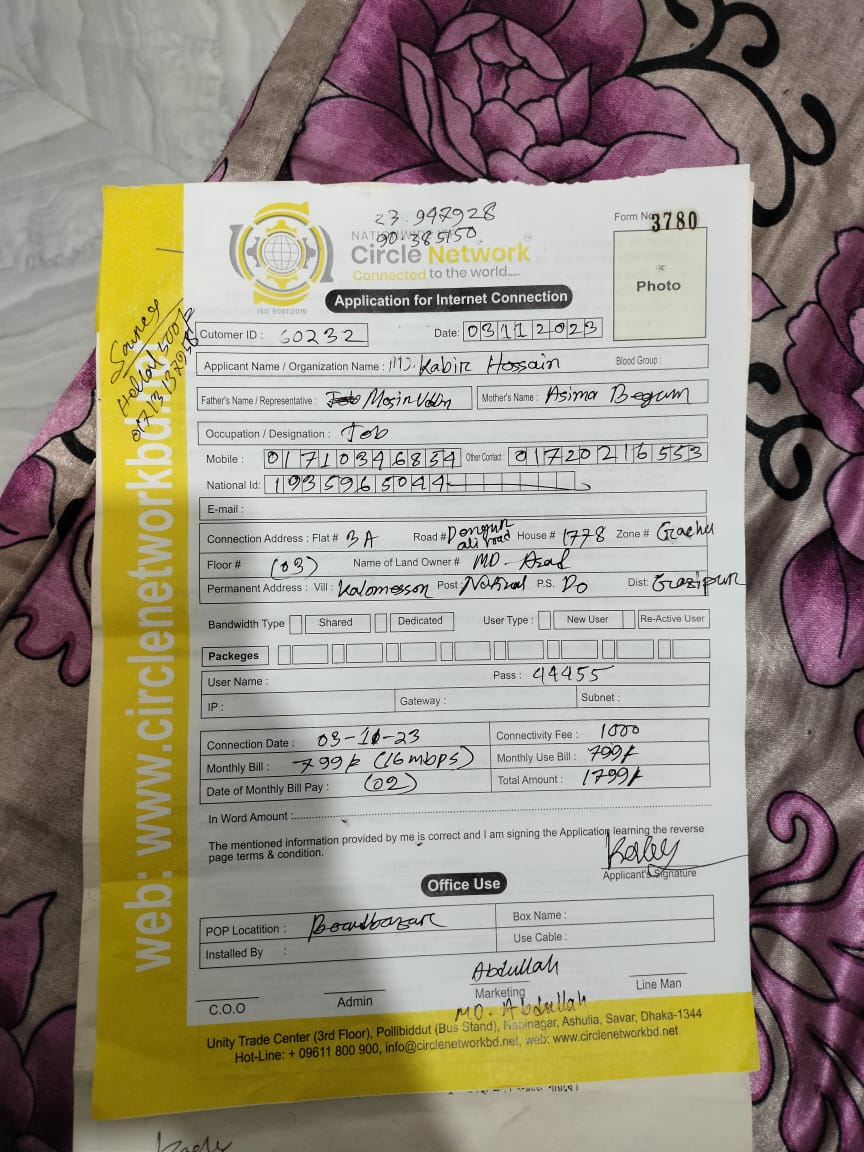 23.947928
90.385150
Form No 3780
NATIONWIDE
Circle Network
Connected to the world.....
ISO 9001:2015
Photo
Application for Internet Connection
Cutomer ID : 60232 Date: 03112023
Applicant Name / Organization Name : MD. Kabir Hossain Blood Group :
Father's Name / Representative : Mosin Uddin Mother's Name : Asima Begum
Occupation / Designation : Job
Mobile : 01710346854 Other Contact : 01720216553
National Id: 1935965044
E-mail :
Connection Address : Flat # 3A Road # ali road House # 1778 Zone # Gachu
Floor # (03) Name of Land Owner # MD. Asad
Permanent Address : Vill : Kalomesson Post P.S. DO Dist: Gazipur
Bandwidth Type Shared Dedicated User Type : New User Re-Active User
Packeges
User Name : Pass : 44455
IP : Gateway : Subnet :
Connection Date : 03-11-23 Connectivity Fee : 1000
Monthly Bill : 799/- (16 mbps) Monthly Use Bill : 799/-
Date of Monthly Bill Pay : (02) Total Amount : 1799/-
In Word Amount :
The mentioned information provided by me is correct and I am signing the Application learning the reverse
page terms & condition.
Applicant's Signature
Office Use
POP Locatition : Boardbazar Box Name :
Installed By : Use Cable :
Abdullah
C.O.O Admin Marketing Line Man
MD. Abdullah
Unity Trade Center (3rd Floor), Pollibiddut (Bus Stand), Nabinagar, Ashulia, Savar, Dhaka-1344
Hot-Line: + 09611 800 900, info@circlenetworkbd.net, web: www.circlenetworkbd.net
web: www.circlenetworkbd.net